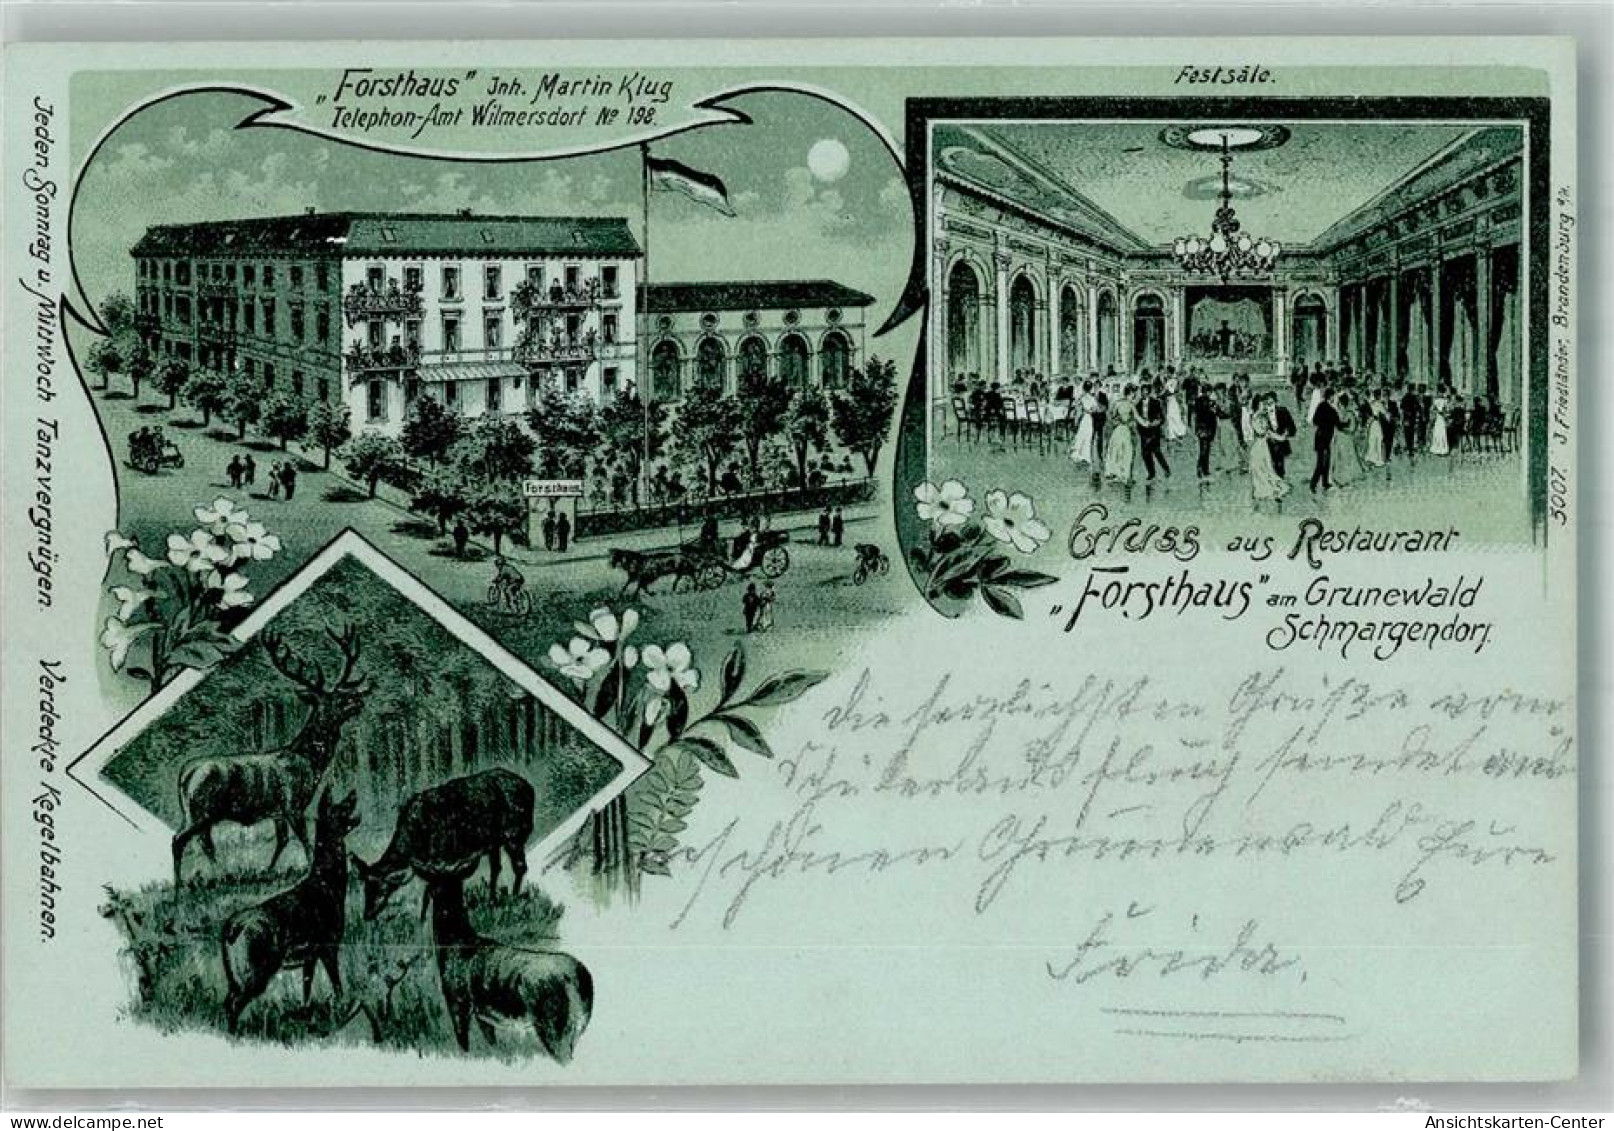 „Forsthaus" Jnh. Martin Klug
Telephon-Amt Wilmersdorf No 198.
Festsäle.
Jeden Sonntag u. Mittwoch Tanzvergnügen. Verdeckte Kegelbahnen.
Forsthaus
5007. J. Friedländer, Brandenburg a/H.
Gruss aus Restaurant
„Forsthaus" am Grunewald
Schmargendorf.
die herzlichsten Grüße vom
sendet aus
schönen Grunewald Eure
Frieda.
Ansichtskarten-Center